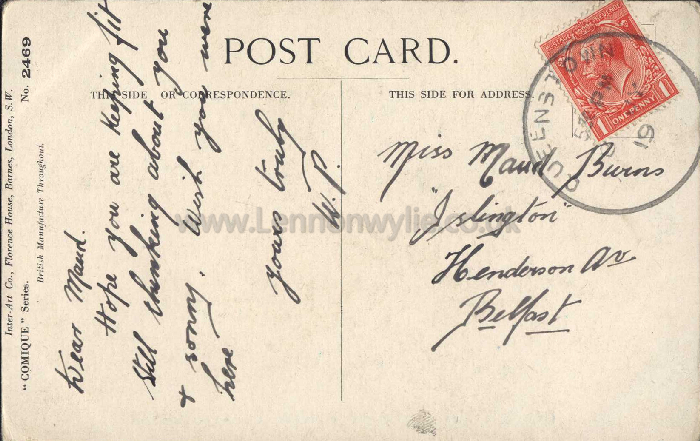 POST CARD.
THIS SIDE FOR CORRESPONDENCE.
THIS SIDE FOR ADDRESS.
Inter-Art Co., Florence House, Barnes, London, S.W.
British Manufacture Throughout.
"COMIQUE" Series. No. 2469
Dear Maud.
Hope you are keeping fit
Still thinking about you
& sonny. Wish you were
here
yours truly
W.P.
Miss Maud Burns
"Islington"
Henderson Av
Belfast
QUEENSTOWN
19
1 ONE PENNY 1
www.Lennonwylie.co.uk